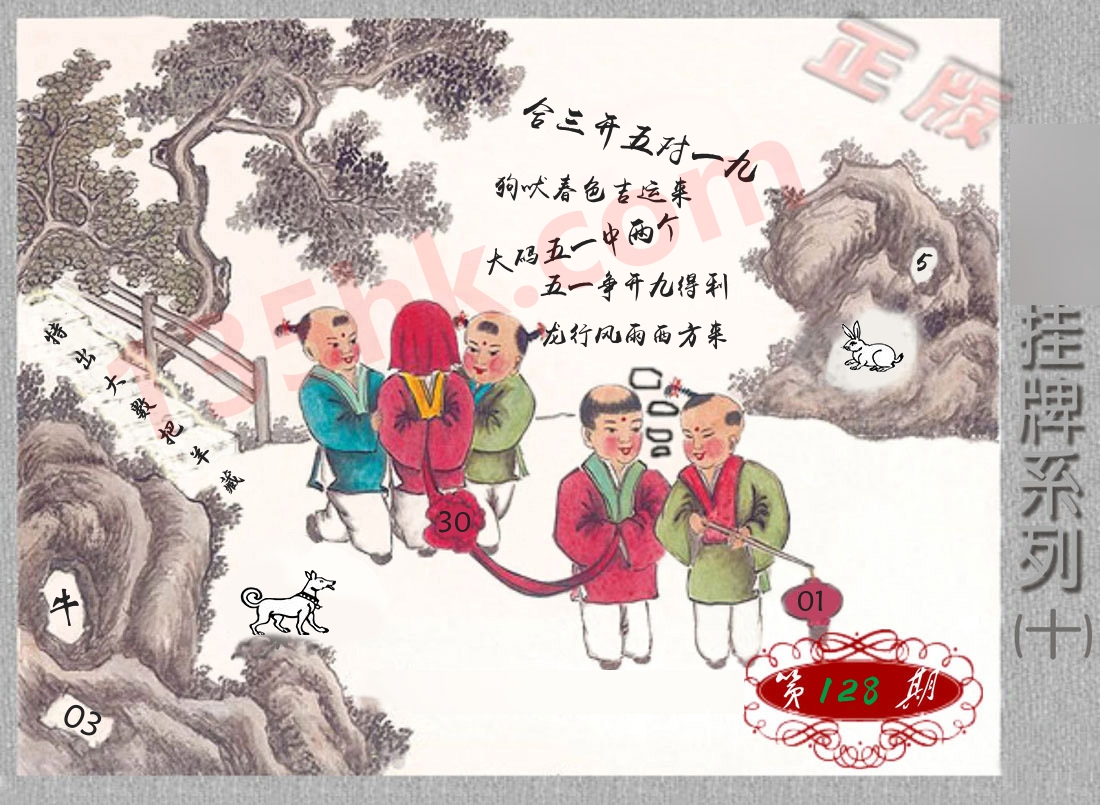 正版
合三开五对一九
狗吠春色吉运来
大码五一中两个
五一争开九得利
龙行风雨西方来
5
特出大數把羊藏
30
01
牛
03
第128期
挂牌系列(十)
135hk.com